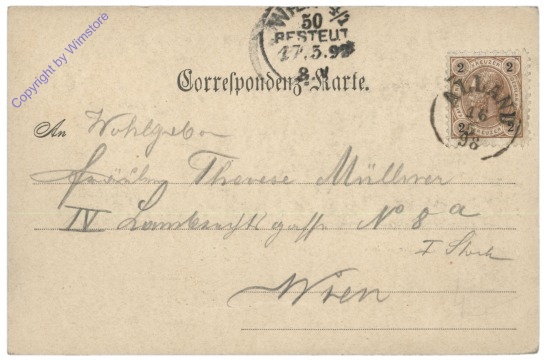 Copyright by Wimstore
WIEN 4/1
50
BESTELLT
17.5.98
8.V
Correspondenz-Karte.
2 KREUZER 2
2 KREUZER 2
ALLAND
16
5
98
An Wohlgeboren
Fräulein Therese Müllner
IV Lambrechtgasse No 8a
I Stock
Wien